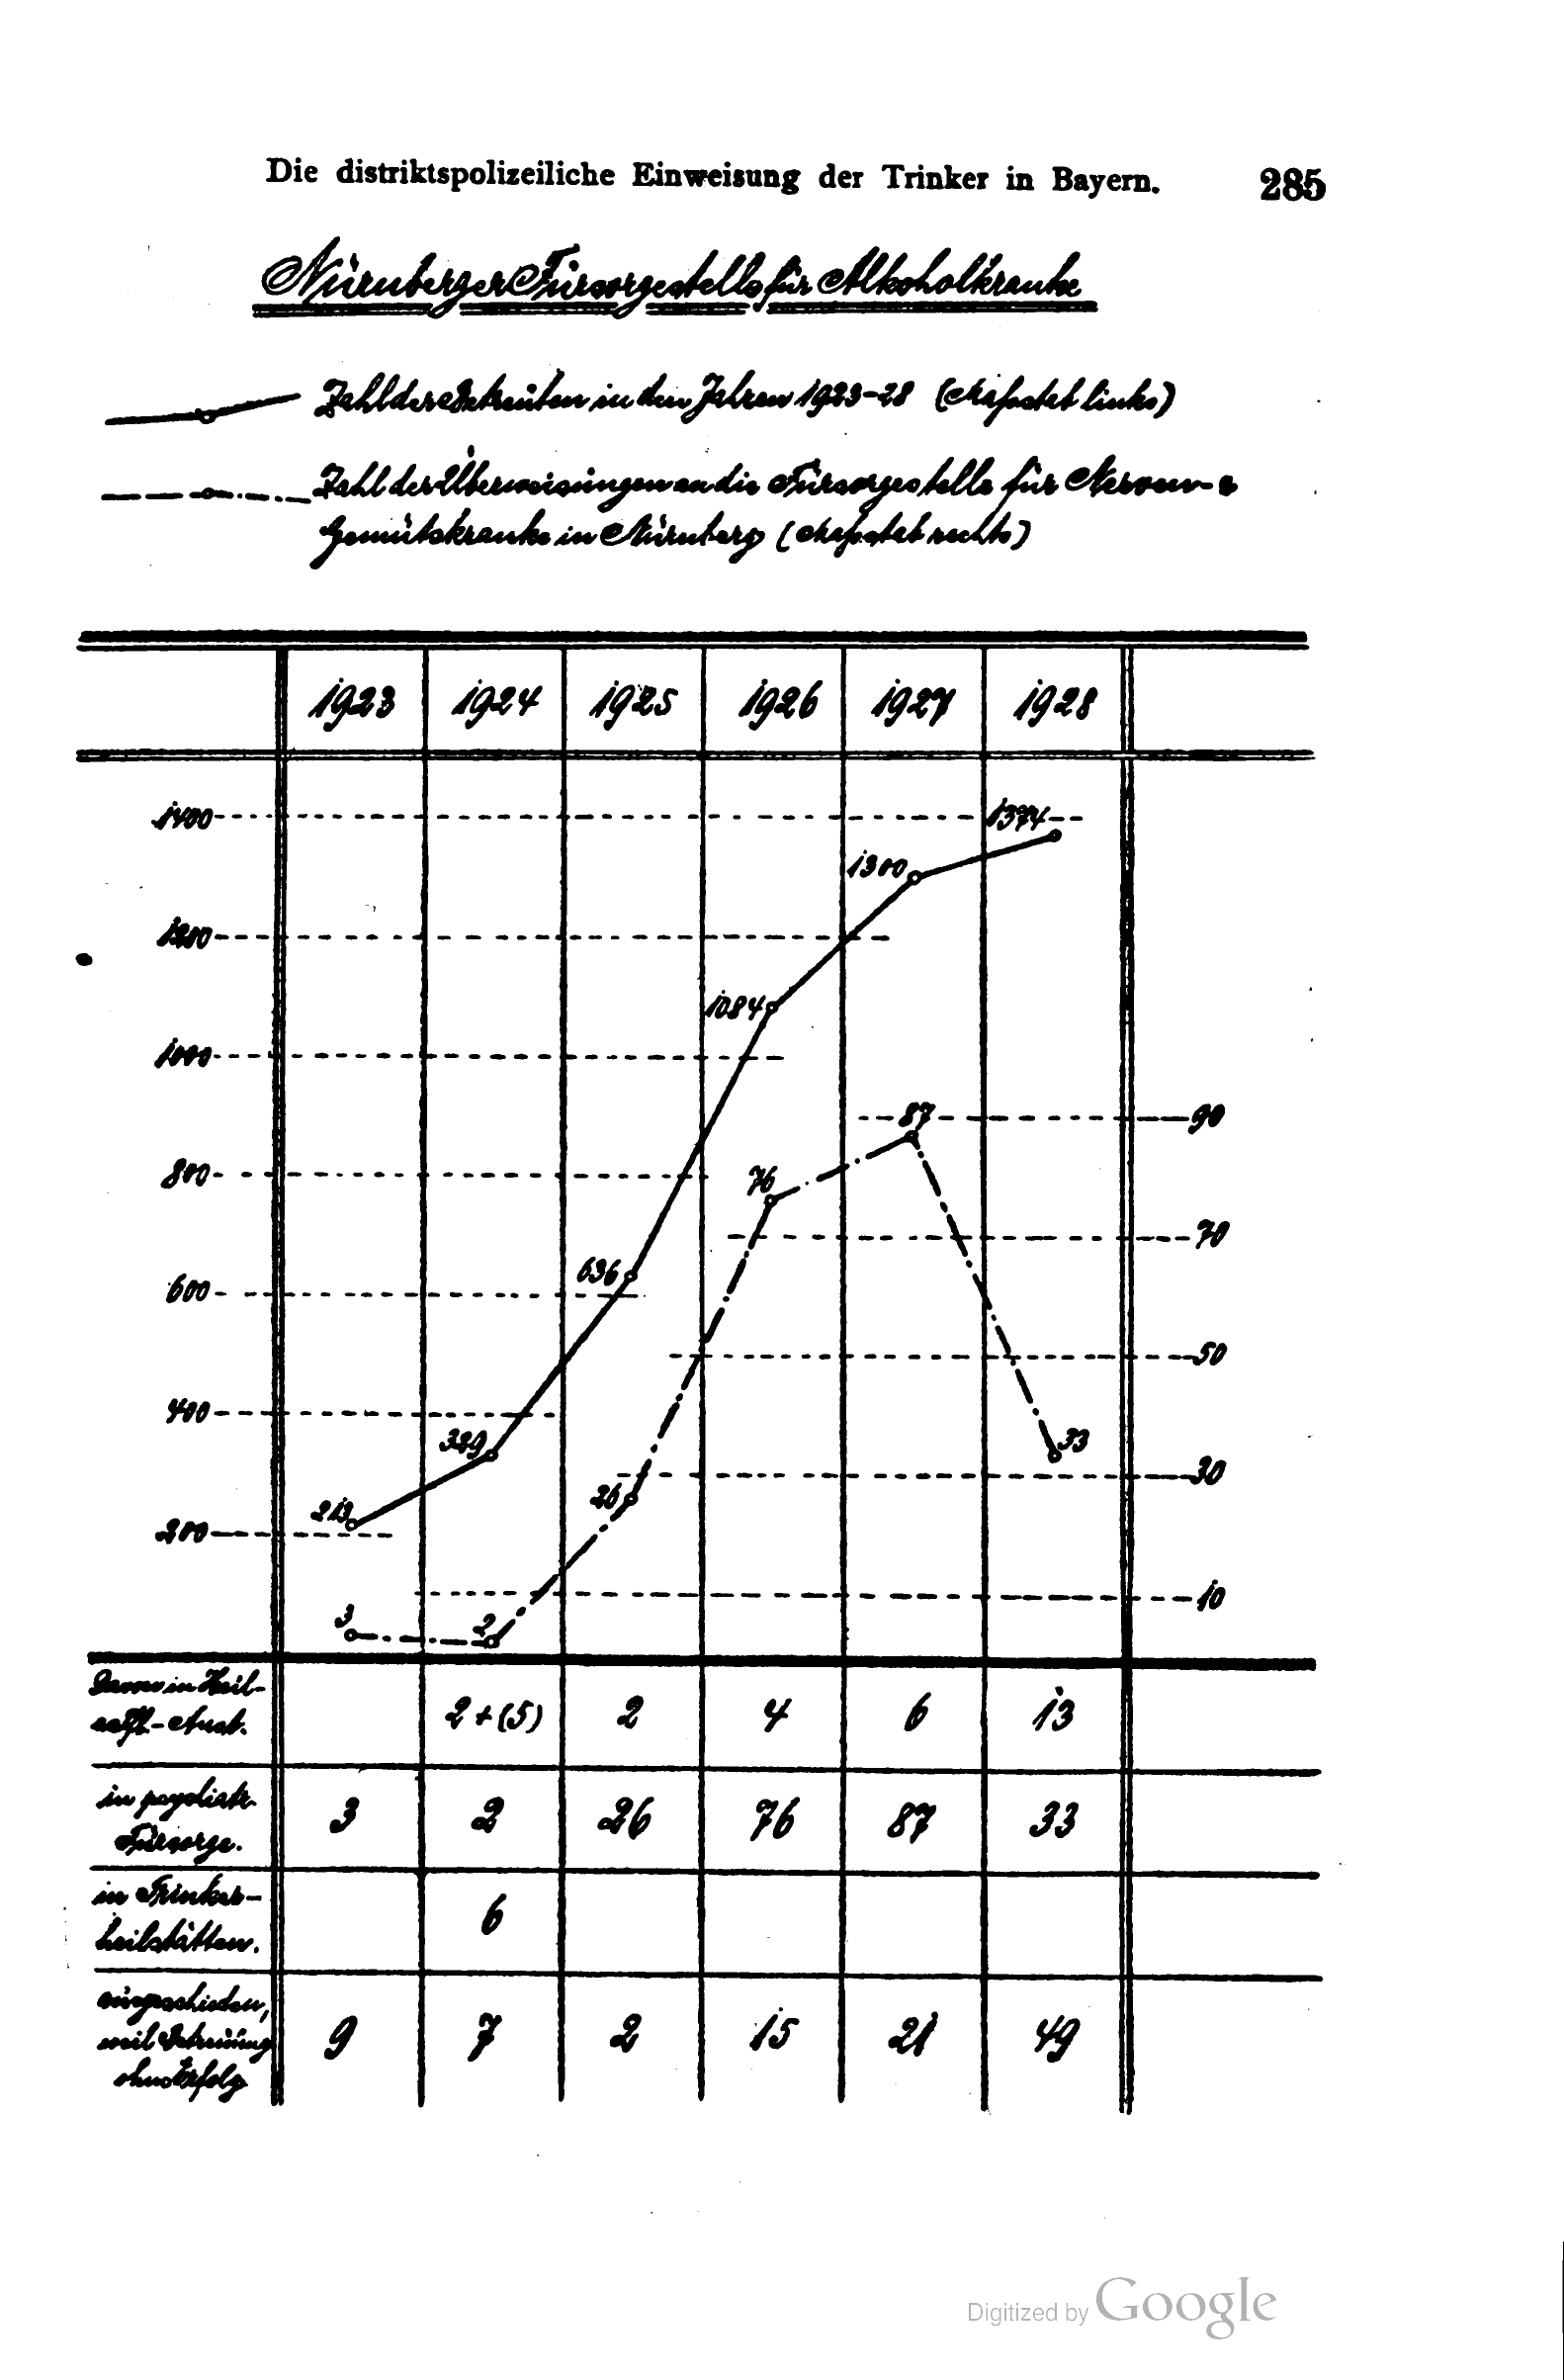 Die distriktspolizeiliche Einweisung der Trinker in Bayern. 285
Nürnberger Fürsorgestelle für Alkoholkranke
Zahl der Betreuten in den Jahren 1923-28 (Maßstab links)
Zahl der Überweisungen an die Fürsorgestelle für Nerven- &
Gemütskranke in Nürnberg (Maßstab rechts)
1923 1924 1925 1926 1927 1928
1400 1374
1300
1200
1084
1000
87 90
800
76
70
636
600
50
400
329 33
30
26
213
200
10
3 2
Davon in Heil-
u. Pfl.-Anst. 2+(5) 2 4 6 13
in psychiatr.
Fürsorge. 3 2 26 76 87 33
in Trinker-
heilstätten. 6
ausgeschieden,
weil Betreuung 9 7 2 15 21 49
ohne Erfolg
Digitized by Google